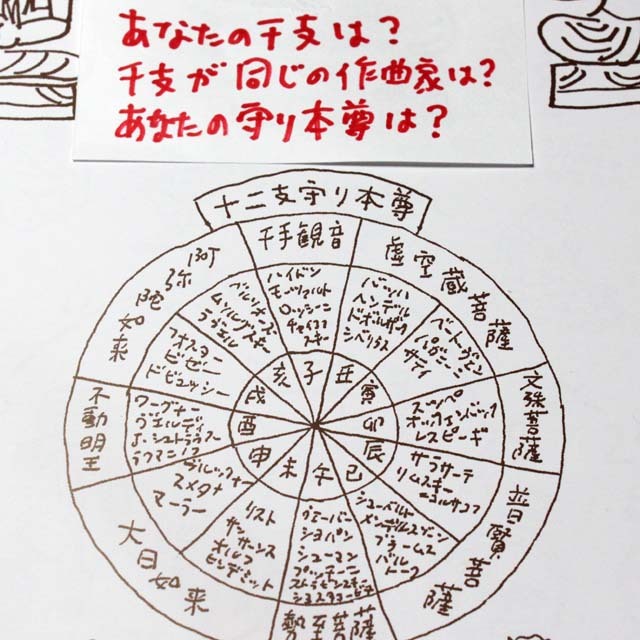 あなたの干支は?
干支が同じの作曲家は?
あなたの守り本尊は?
十二支守り本尊
千手観音
虚空蔵菩薩
文殊菩薩
普賢菩薩
勢至菩薩
大日如来
不動明王
阿弥陀如来
ハイドン
モーツァルト
ロッシーニ
チャイコフ
スキー
バッハ
ヘンデル
ドボルザーク
シベリウス
ベートーヴェン
パガニーニ
サティ
スッペ
オッフェンバック
レスピーギ
サラサーテ
リムスキー
=コルサコフ
シューベルト
メンデルスゾーン
ブラームス
バルトーク
ウェーバー
ショパン
シューマン
プッチーニ
ストラビンスキー
ショスタコービチ
リスト
サンサーンス
オルフ
ヒンデミット
ブルックナー
スメタナ
マーラー
ワーグナー
ヴェルディ
J・シュトラウス
ラフマニノフ
フォスター
ビゼー
ドビュッシー
ベルリオーズ
ムソルグスキー
ラヴェル
子
丑
寅
卯
辰
巳
午
未
申
酉
戌
亥